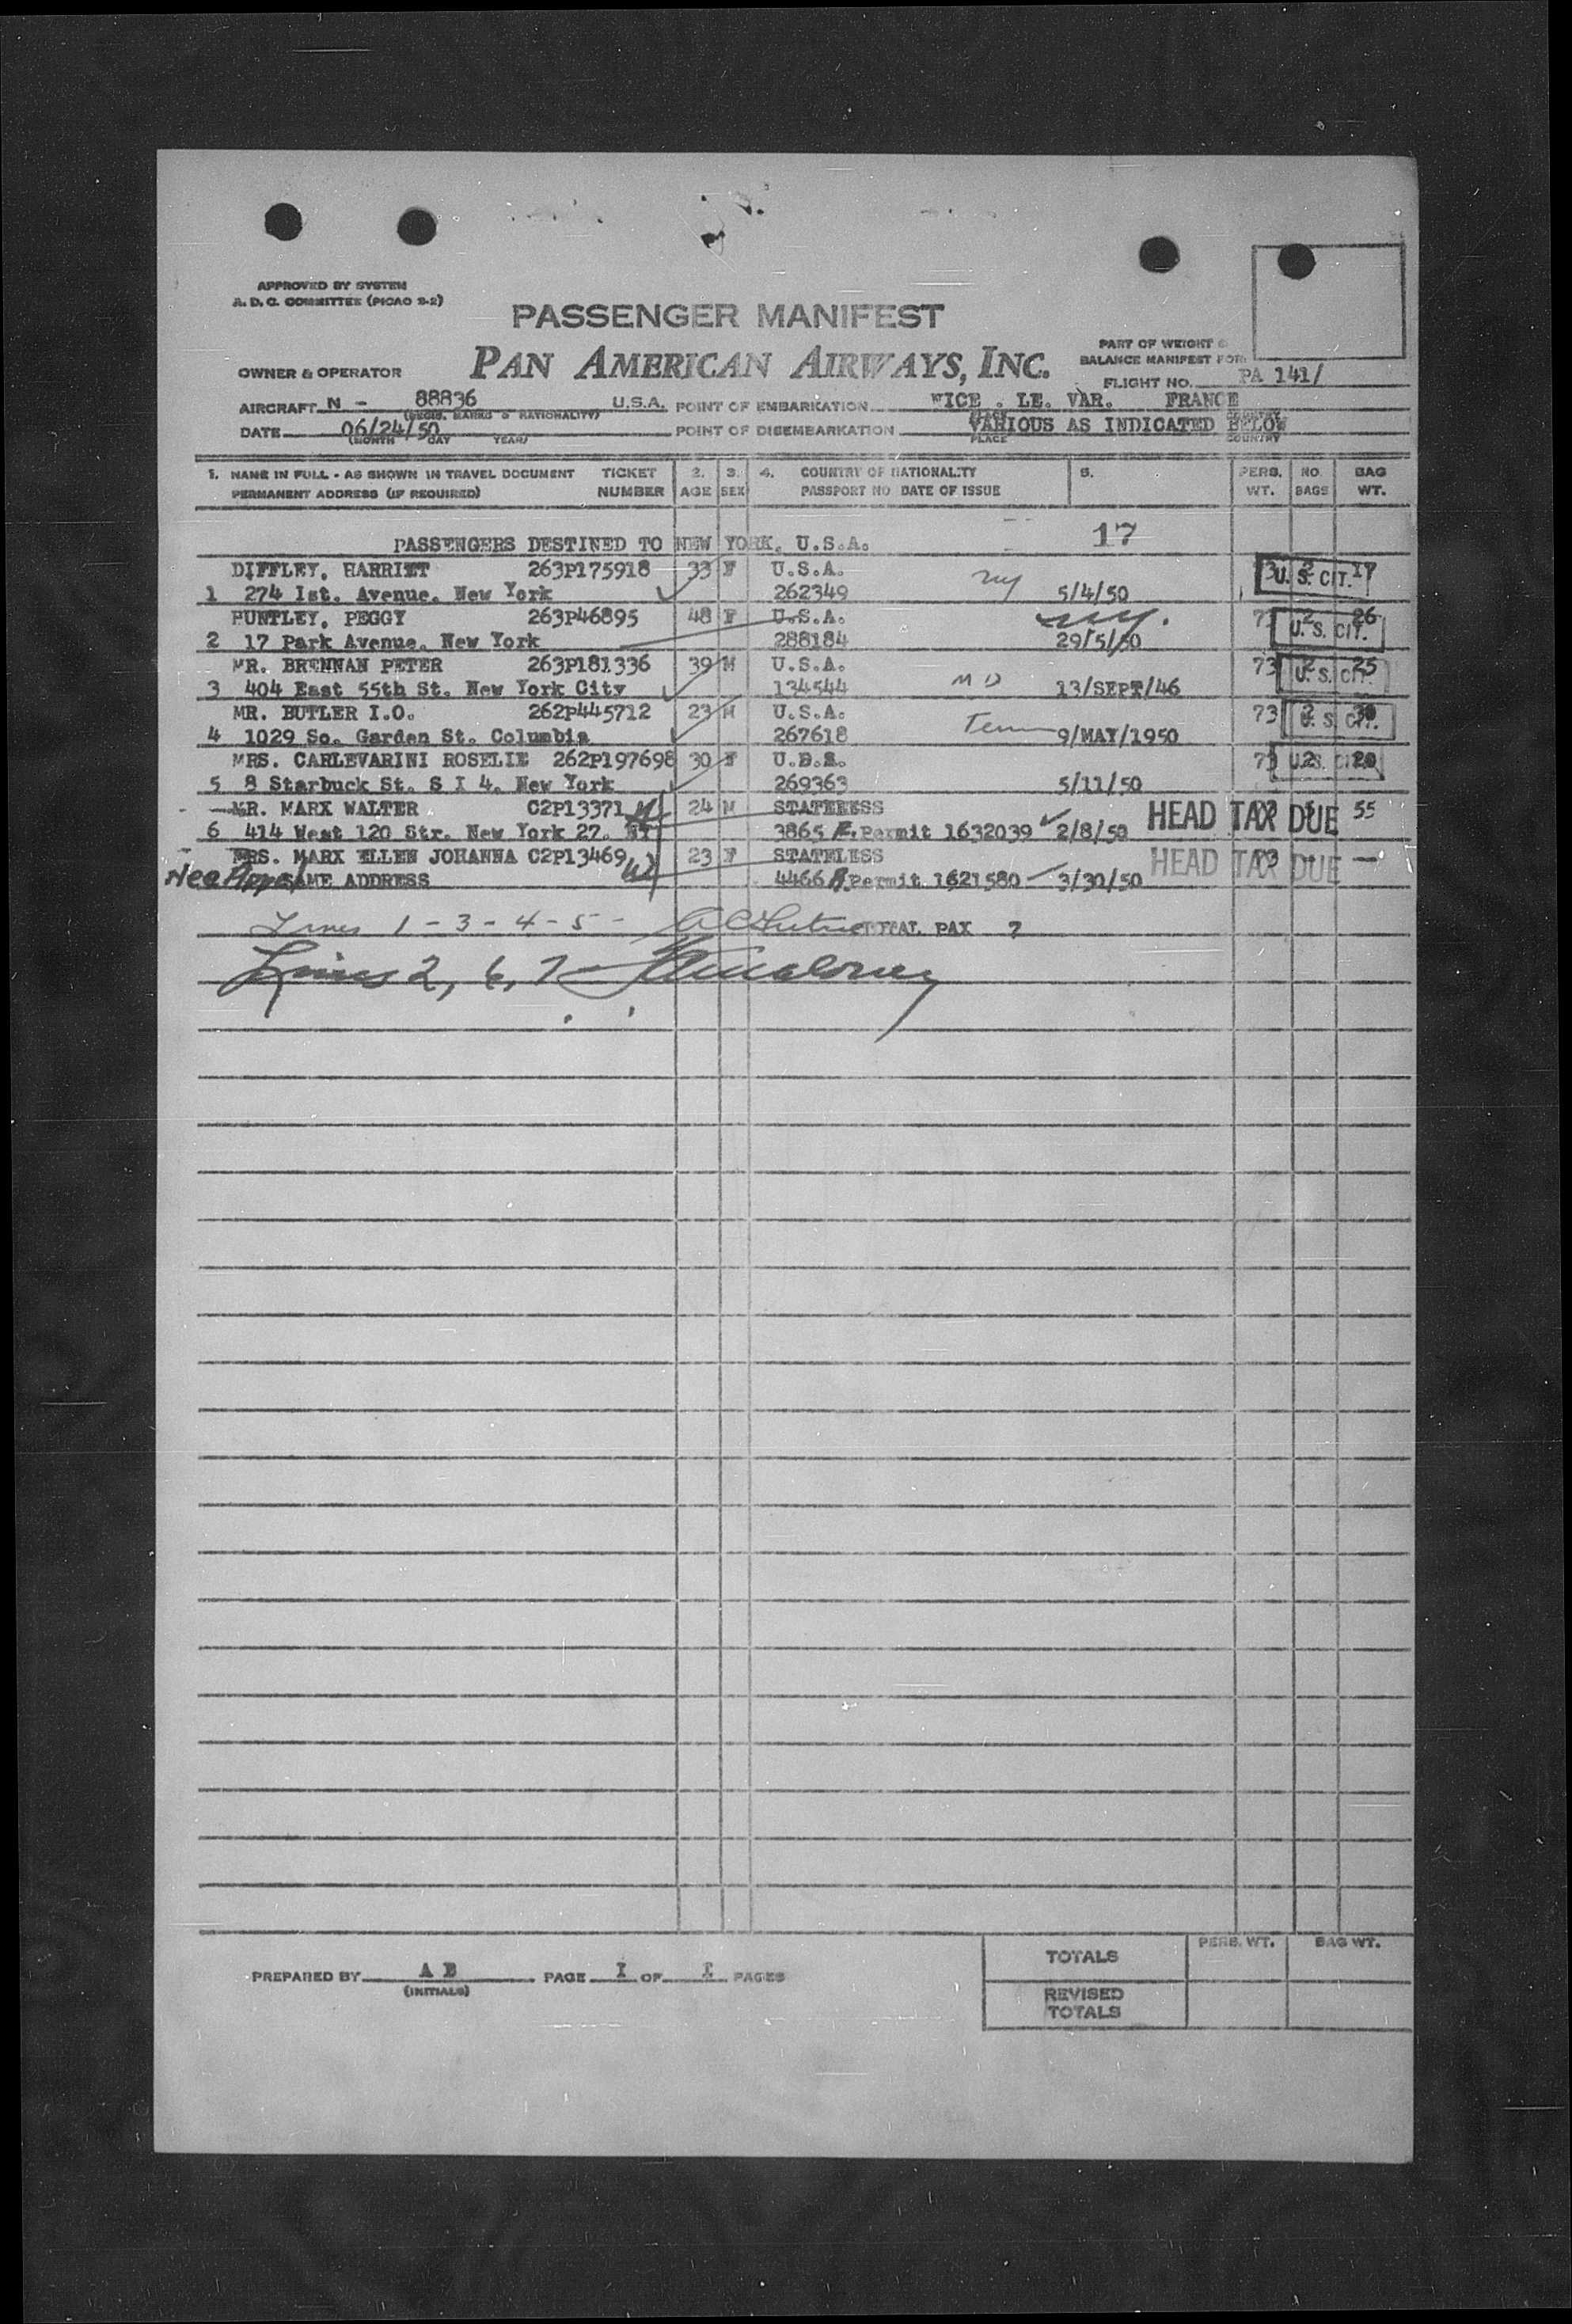 APPROVED BY SYSTEM
A. D. C. COMMITTEE (PICAO 2-2)
PASSENGER MANIFEST
PAN AMERICAN AIRWAYS, INC.
PART OF WEIGHT &
BALANCE MANIFEST FOR
OWNER & OPERATOR
FLIGHT NO. PA 141/
AIRCRAFT N - 88836 U.S.A. POINT OF EMBARKATION NICE . LE. VAR. FRANCE
(REGIS. MARKS & NATIONALITY) PLACE COUNTRY
DATE 06/24/50 POINT OF DISEMBARKATION VARIOUS AS INDICATED BELOW
(MONTH DAY YEAR) PLACE COUNTRY
1. NAME IN FULL - AS SHOWN IN TRAVEL DOCUMENT TICKET 2. 3. 4. COUNTRY OF NATIONALITY 5. PERS. NO. BAG
PERMANENT ADDRESS (IF REQUIRED) NUMBER AGE SEX PASSPORT NO DATE OF ISSUE WT. BAGS WT.
PASSENGERS DESTINED TO NEW YORK, U.S.A. 17
DIFFLEY, HARRIET 263P175918 33 F U.S.A. 73 2 17 U. S. CIT.
1 274 Ist. Avenue. New York 262349 ny 5/4/50
HUNTLEY, PEGGY 263P46895 48 F U.S.A. ny. 73 2 26 U. S. CIT.
2 17 Park Avenue. New York 288184 29/5/50
MR. BRENNAN PETER 263P181336 39 M U.S.A. 73 2 25 U. S. CIT.
3 404 East 55th St. New York City 134544 MD 13/SEPT/46
MR. BUTLER I.O. 262P445712 23 M U.S.A. 73 2 30 U. S. CIT.
4 1029 So. Garden St. Columbia 267618 Tenn 9/MAY/1950
MRS. CARLEVARINI ROSELIE 262P197698 30 F U.S.A. 73 2 20 U.S. CIT.
5 8 Starbuck St. S I 4. New York 269363 5/11/50
MR. MARX WALTER C2P13371 24 M STATELESS HEAD TAX DUE 55
6 414 West 120 Str. New York 27. NY 3865 R. Permit 1632039 2/8/50
MRS. MARX ELLEN JOHANNA C2P13469 23 F STATELESS 73 HEAD TAX DUE
SAME ADDRESS 4466 R Permit 1621580 3/30/50
Lines 1 - 3 - 4 - 5 - TOTAL PAX 7
Lines 2, 6, 7
PREPARED BY A B PAGE I OF I PAGES
(INITIALS)
TOTALS PERS. WT. BAG WT.
REVISED
TOTALS